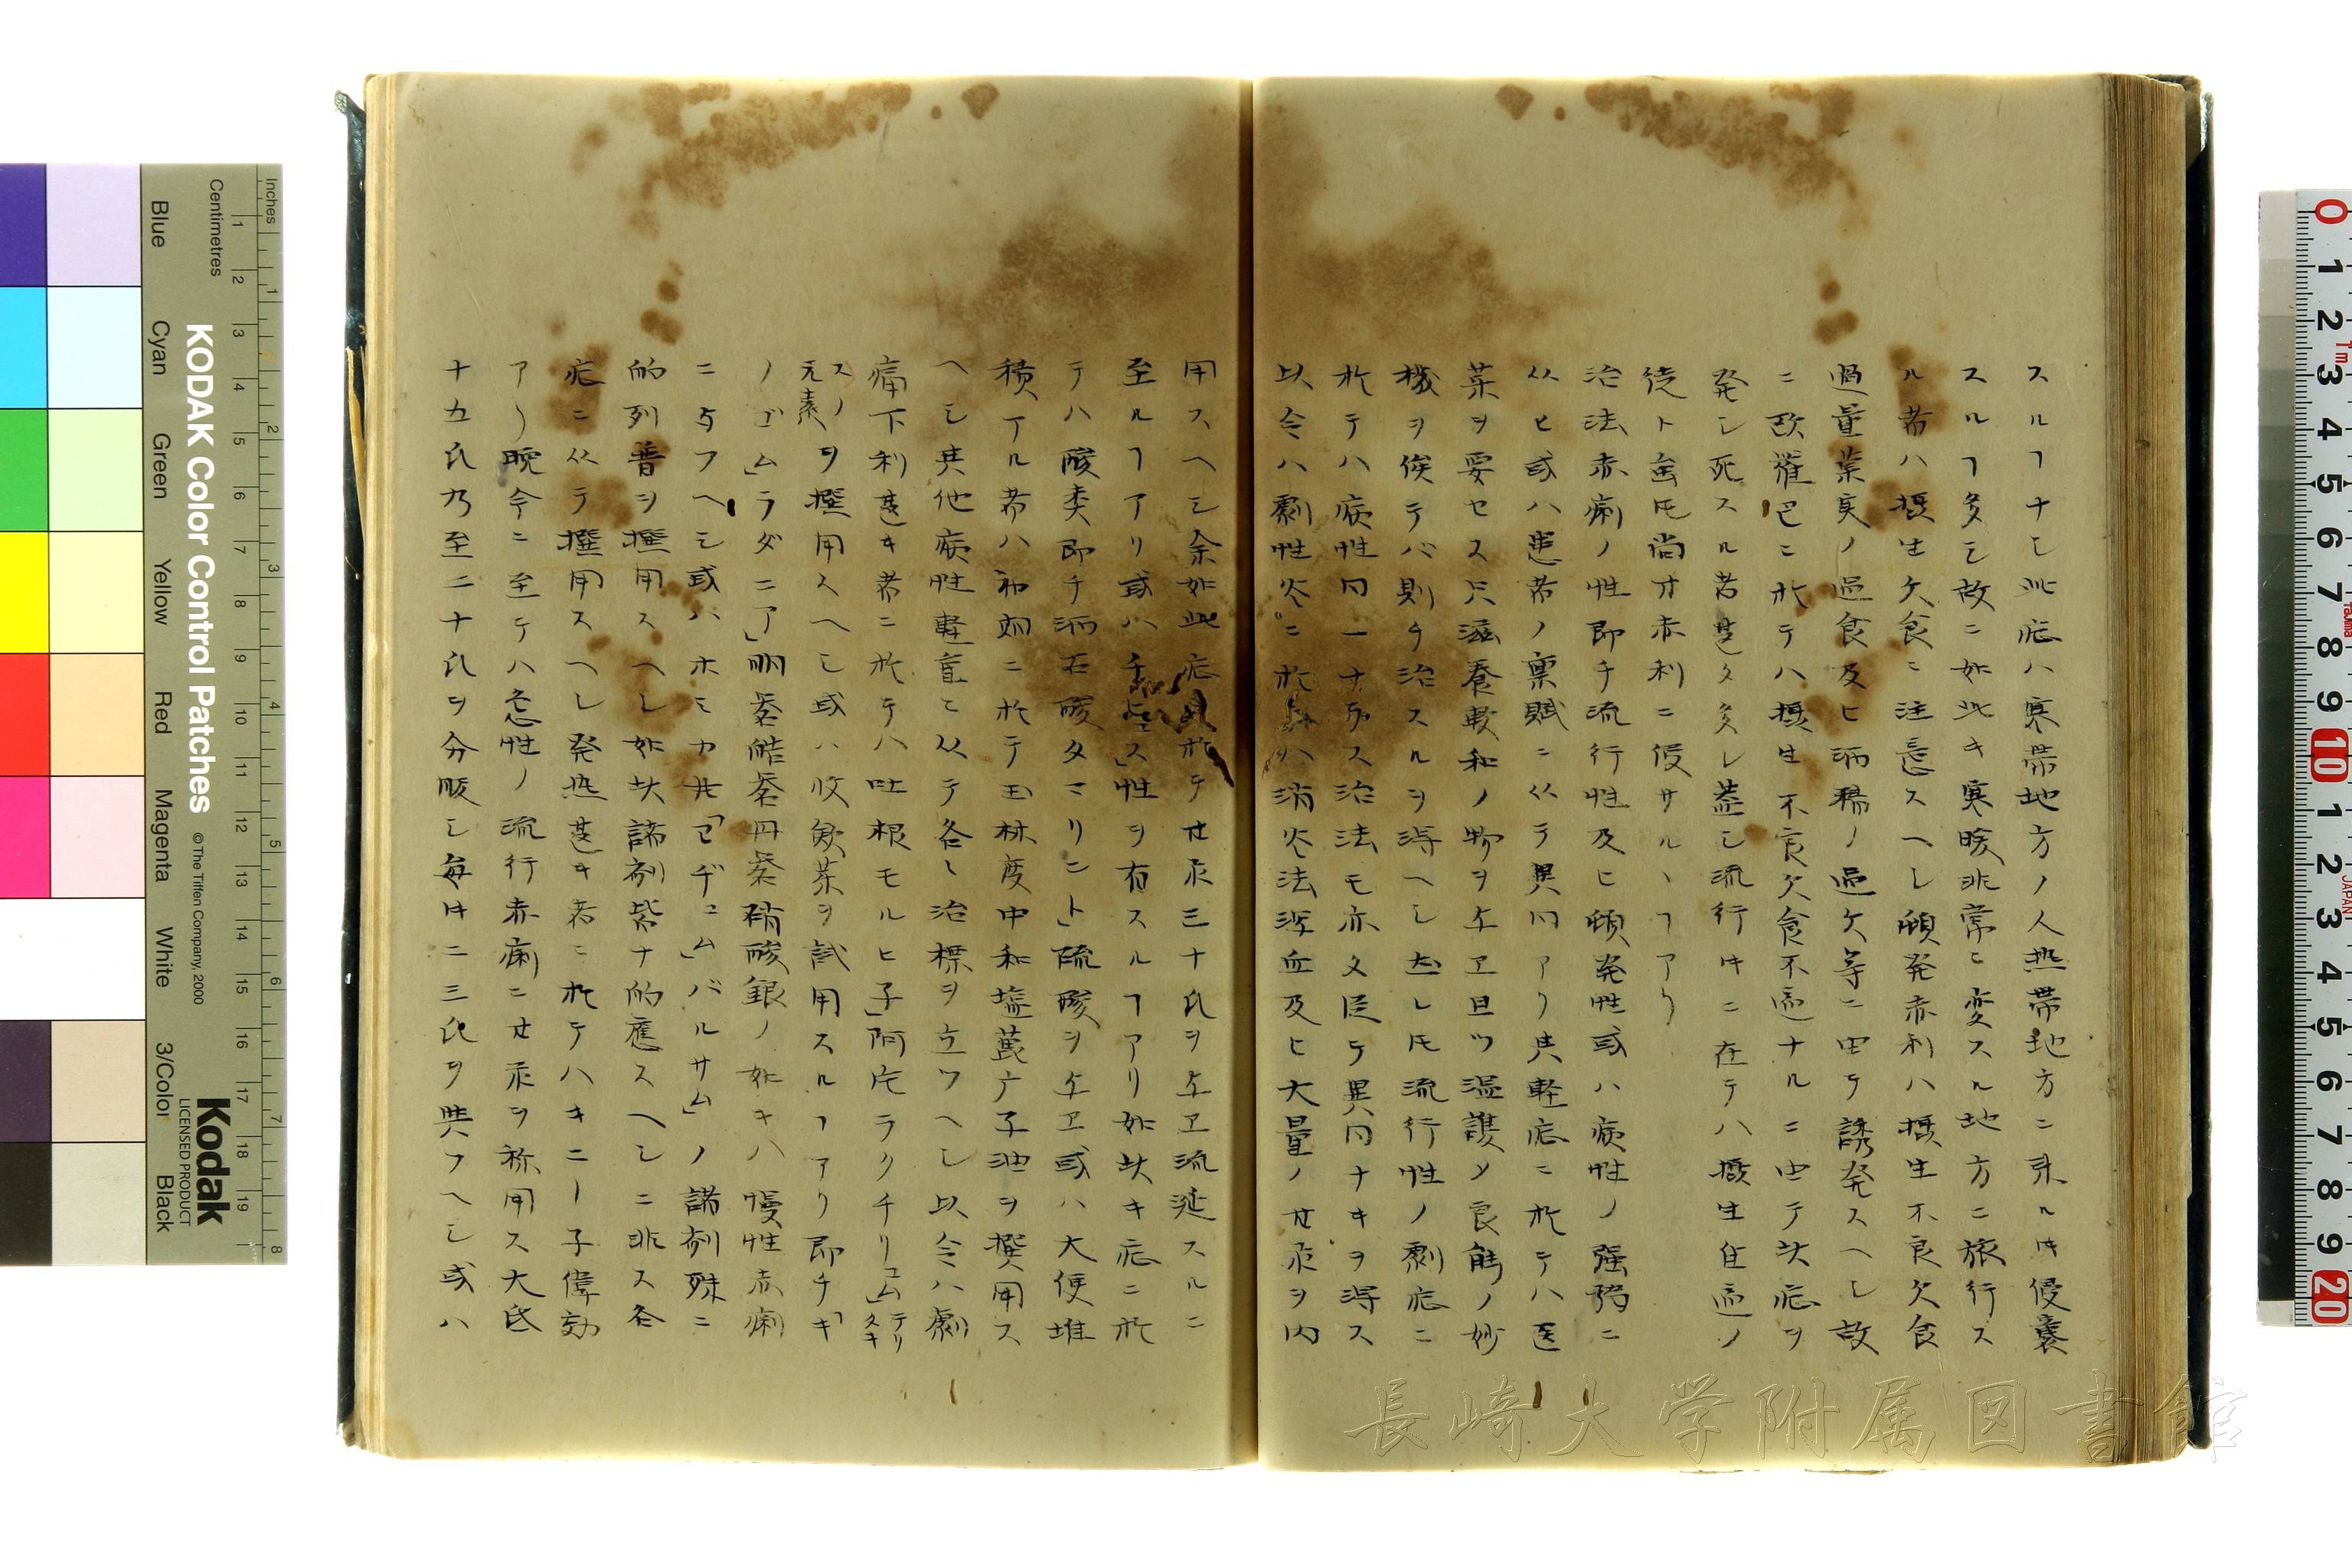 スルヿナシ此症ハ寒帯地方ノ人熱帯地方ニ来ル时侵襲
スルヿ多シ故ニ如此キ寒暖非常ニ変スル地方ニ旅行ス
ル者ハ摂生欠食ニ注意スヘシ頗発赤利ハ摂生不良欠食
過量菓実ノ過食及ヒ洒楊ノ過欠等ニ由テ誘発スヘシ故
ニ欧羅巴ニ於テハ摂生不良欠食不適ナルニ由テ此症ヲ
発シ死スル者甚タ多シ蓋シ流行时ニ在テハ摂生住適ノ
徒ト雖𪜈尚ホ赤利ニ侵サルヽヿアリ
治法赤痢ノ性即チ流行性及ヒ頗発性或ハ病性ノ強弱ニ
从ヒ或ハ患者ノ稟賦ニ从テ異同アリ其軽症ニ於テハ医
薬ヲ要セス只滋養軟和ノ物ヲ与エ且ツ温護メ良能ノ妙
機ヲ俟テバ則チ治スルヲ得ヘシ然レ𪜈流行性ノ劇症ニ
於テハ病性同一ナラス治法モ亦タ従テ異同ナキヲ得ス
以令ハ劇性炎ニ於テハ消炎法瀉血及ヒ大量ノ甘汞ヲ内
用スヘシ余如此症ニ於テ甘汞三十氏ヲ与エ流延スルニ
至ルヿアリ或ハ「チフス」性ヲ有スルヿアリ如此キ症ニ於
テハ酸類即チ洒石酸タマリント」硫酸ヲ与エ或ハ大便堆
積アル者ハ初期ニ於テ王林度中和塩蓖麻子油ヲ撰用ス
ヘシ其他病性軽重ニ从テ各〻治標ヲ立ツヘシ以令ハ劇
痛下利甚キ者ニ於テハ吐根モルヒ子」阿片ラクチリユム」テリ
スノ元素ヲ撰用スヘシ或ハ收斂薬ヲ試用スルヿアリ即チ「キ
ノゴム」ラダニア」明礬皓礬丹礬硝酸銀ノ如キハ慢性赤痢
ニ与フヘシ或ハホミカ并「ロヂユム」バルサム」ノ諸剤殊ニ
的列普ヲ撰用スヘシ如此諸剤皆ナ的應スヘシニ非ス各
症ニ从テ撰用スヘシ発熱甚キ者ニ於テハキニー子偉効
アリ晩今ニ至テハ急性ノ流行赤痢ニ甘汞ヲ称用ス大氐
十五氏乃至二十氏ヲ分服シ毎时二三氏ヲ與フヘシ或ハ
KODAK Color Control Patches
© The Tiffen Company, 2000
Kodak
LICENSED PRODUCT
Inches
Centimetres
Blue
Cyan
Green
Yellow
Red
Magenta
White
3/Color
Black
長崎大学附属図書館